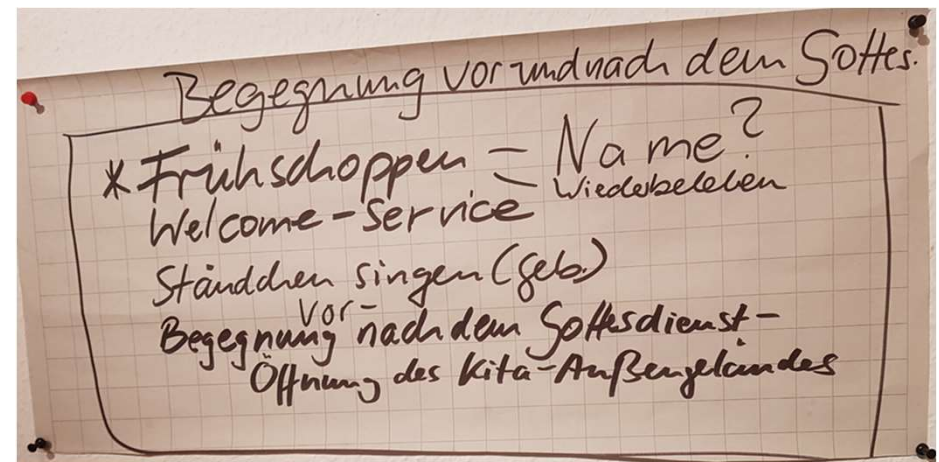 Begegnung vor und nach dem Gottes.
* Frühschoppen – Name?
– Wiederbeleben
Welcome-Service
Ständchen singen (Geb.)
vor-
Begegnung nach dem Gottesdienst-
Öffnung des Kita-Außengeländes